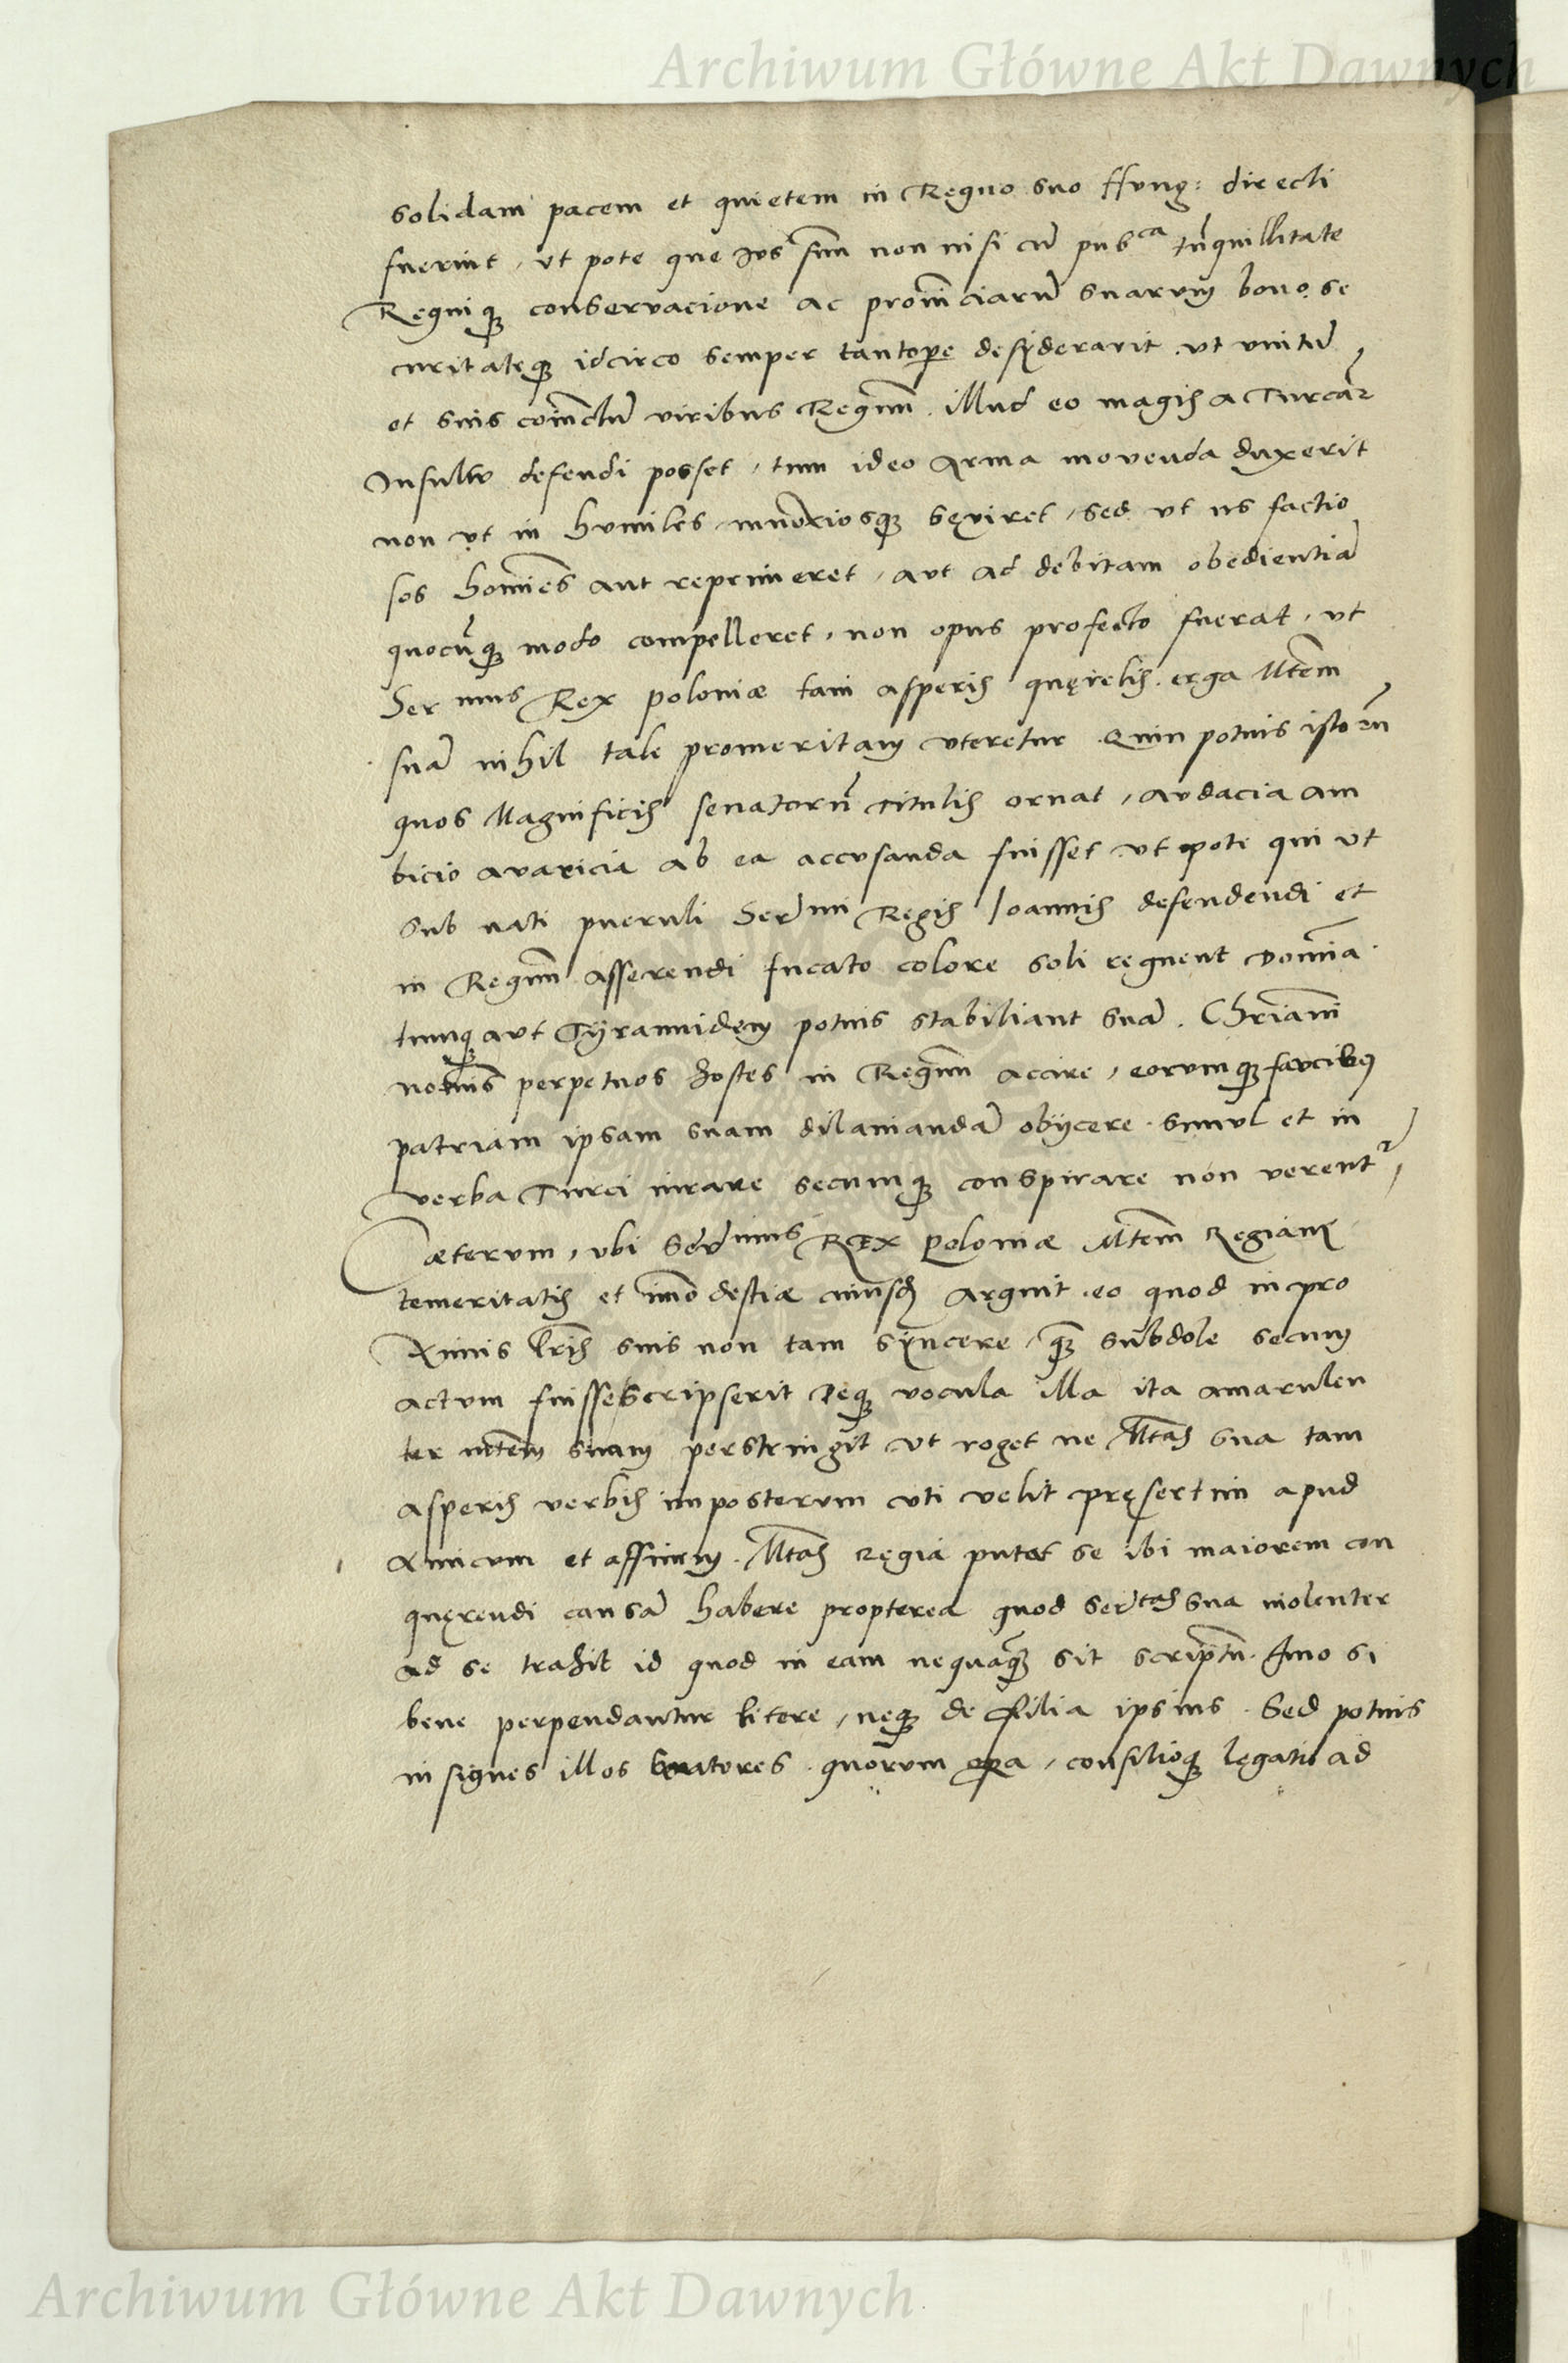 Archiwum Główne Akt Dawnych
solidam pacem et quietem in Regno suo Hung: directi
fuerint, ut pote que Ius suu non nisi cu pub^ca trãquillitate
Regniq3 conservacione ac prouinciaru suarum bono se
curitateq3 idcirco semper tantopere desyderarit ut unitu
et suis coiunctu viribus Regnum illud eo magis a Turcar
Insultu defendi posset, tum ideo Arma movenda duxerit
non ut in humiles innoxiosq3 sęviret, sed ut iis factio
sos homies aut reprimeret, aut ad debitam obedientiã
quocũq3 modo compelleret, non opus profecto fuerat, ut
Ser mus Rex poloniæ tam asperis quęrelis erga Mtem
suã nihil tale promeritam uteretur Quin potius istorũ
quos Magnificis senatorũ titulis ornat, audacia am
bicio avaricia ab ea accusanda fuisset ut pote qui ut
sub nati pueruli Ser mi Regis Ioannis defendendi et
in Regnum asserendi fucato colore soli regnent Domina
tumq3 aut Tÿrannidem potius stabiliant suã. Chriani
nominis perpetuos hostes in Regnum accire, eorumq3 faucibus
patriam ipsam suam dilaniandã obijcere simul et in
verba Turci iurare secumq3 conspirare non verentr
Cæterum, ubi Ser mus REX Poloniæ Mtem Regiam
temeritatis et imodestiæ cuiusd arguit eo quod in pro
ximis lris suis non tam syncere, q3 subdole secum
actum fuisse scripserit Deq3 vocula illa ita amarulen
ter mtem suam perstringit ut roget ne Mtas sua tam
asperis verbis imposterum uti velit pręsertim apud
Amicum et affinem. Mtas Regia putat se ibi maiorem con
quęrendi causã habere propterea quod Ser tas sua violenter
ad se trahit id quod in eam nequaq3 sit scriptũ. Imo si
bene perpendantur litere, neq3 de filia ipsius. Sed potius
insignes illos senatores quorum opera, consilioq3 legatio ad
Archiwum Główne Akt Dawnych